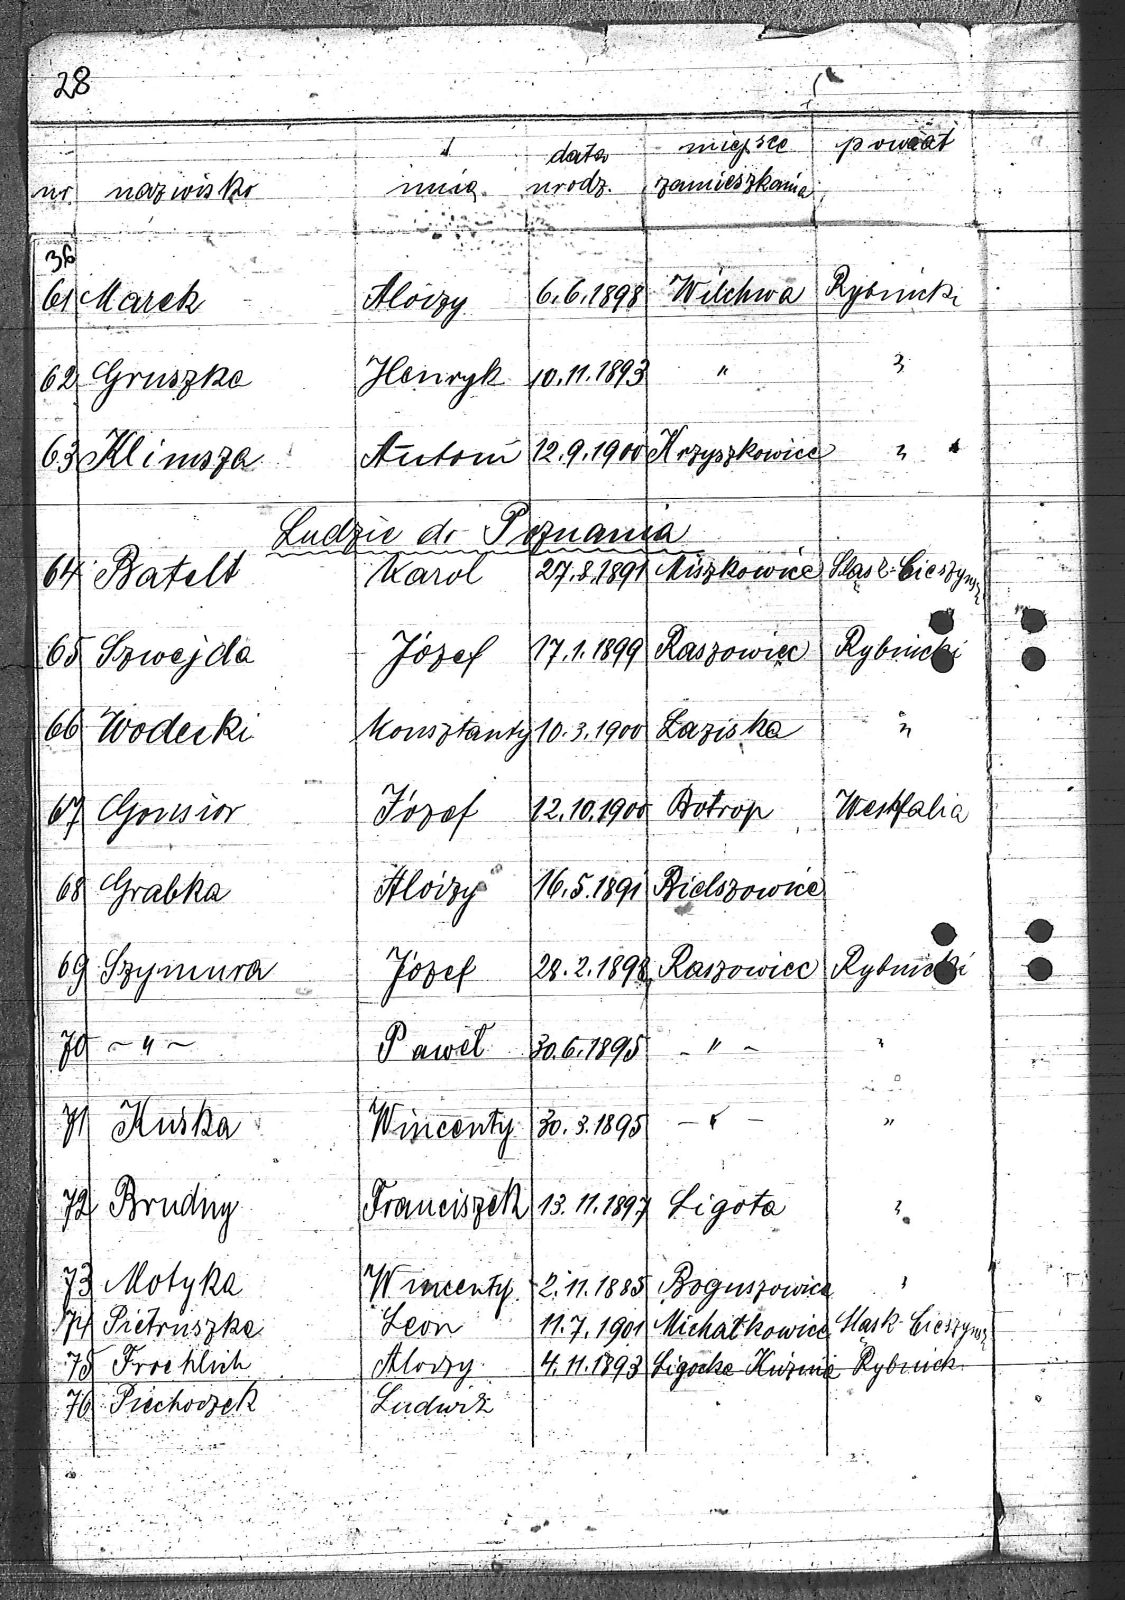 28
nr. nazwisko imię data urodz. miejsce zamieszkania powiat
36
61 Marek Aloizy 6.6.1898 Wilchwa Rybnicki
62 Gruszka Henryk 10.11.1893 " "
63 Klimsza Antoni 12.9.1900 Krzyszkowice "
Ludzie do Poznania
64 Batelt Karol 27.8.1891 Miszkowice Sląsk-Cieszyńs
65 Szwejda Józef 17.1.1899 Raszowiec Rybnicki
66 Wodecki Konsztanty 10.3.1900 Laziska "
67 Gonsior Józef 12.10.1900 Botrop Westfalia
68 Grabka Aloizy 16.5.1891 Bielszowice
69 Szymura Józef 28.2.1898 Raszowiec Rybnicki
70 ~ " ~ Paweł 30.6.1895 - " - "
71 Kuska Wincenty 30.3.1895 - " - "
72 Brudny Franciszek 13.11.1897 Ligota "
73 Motyka Wincenty 2.11.1885 Boguszowice "
74 Pietruszka Leon 11.7.1901 Michałkowice Sląsk-Cieszyńs
75 Froehlich Aloizy 4.11.1893 Ligocka Kuźnia Rybnick.
76 Piechoczek Ludwik